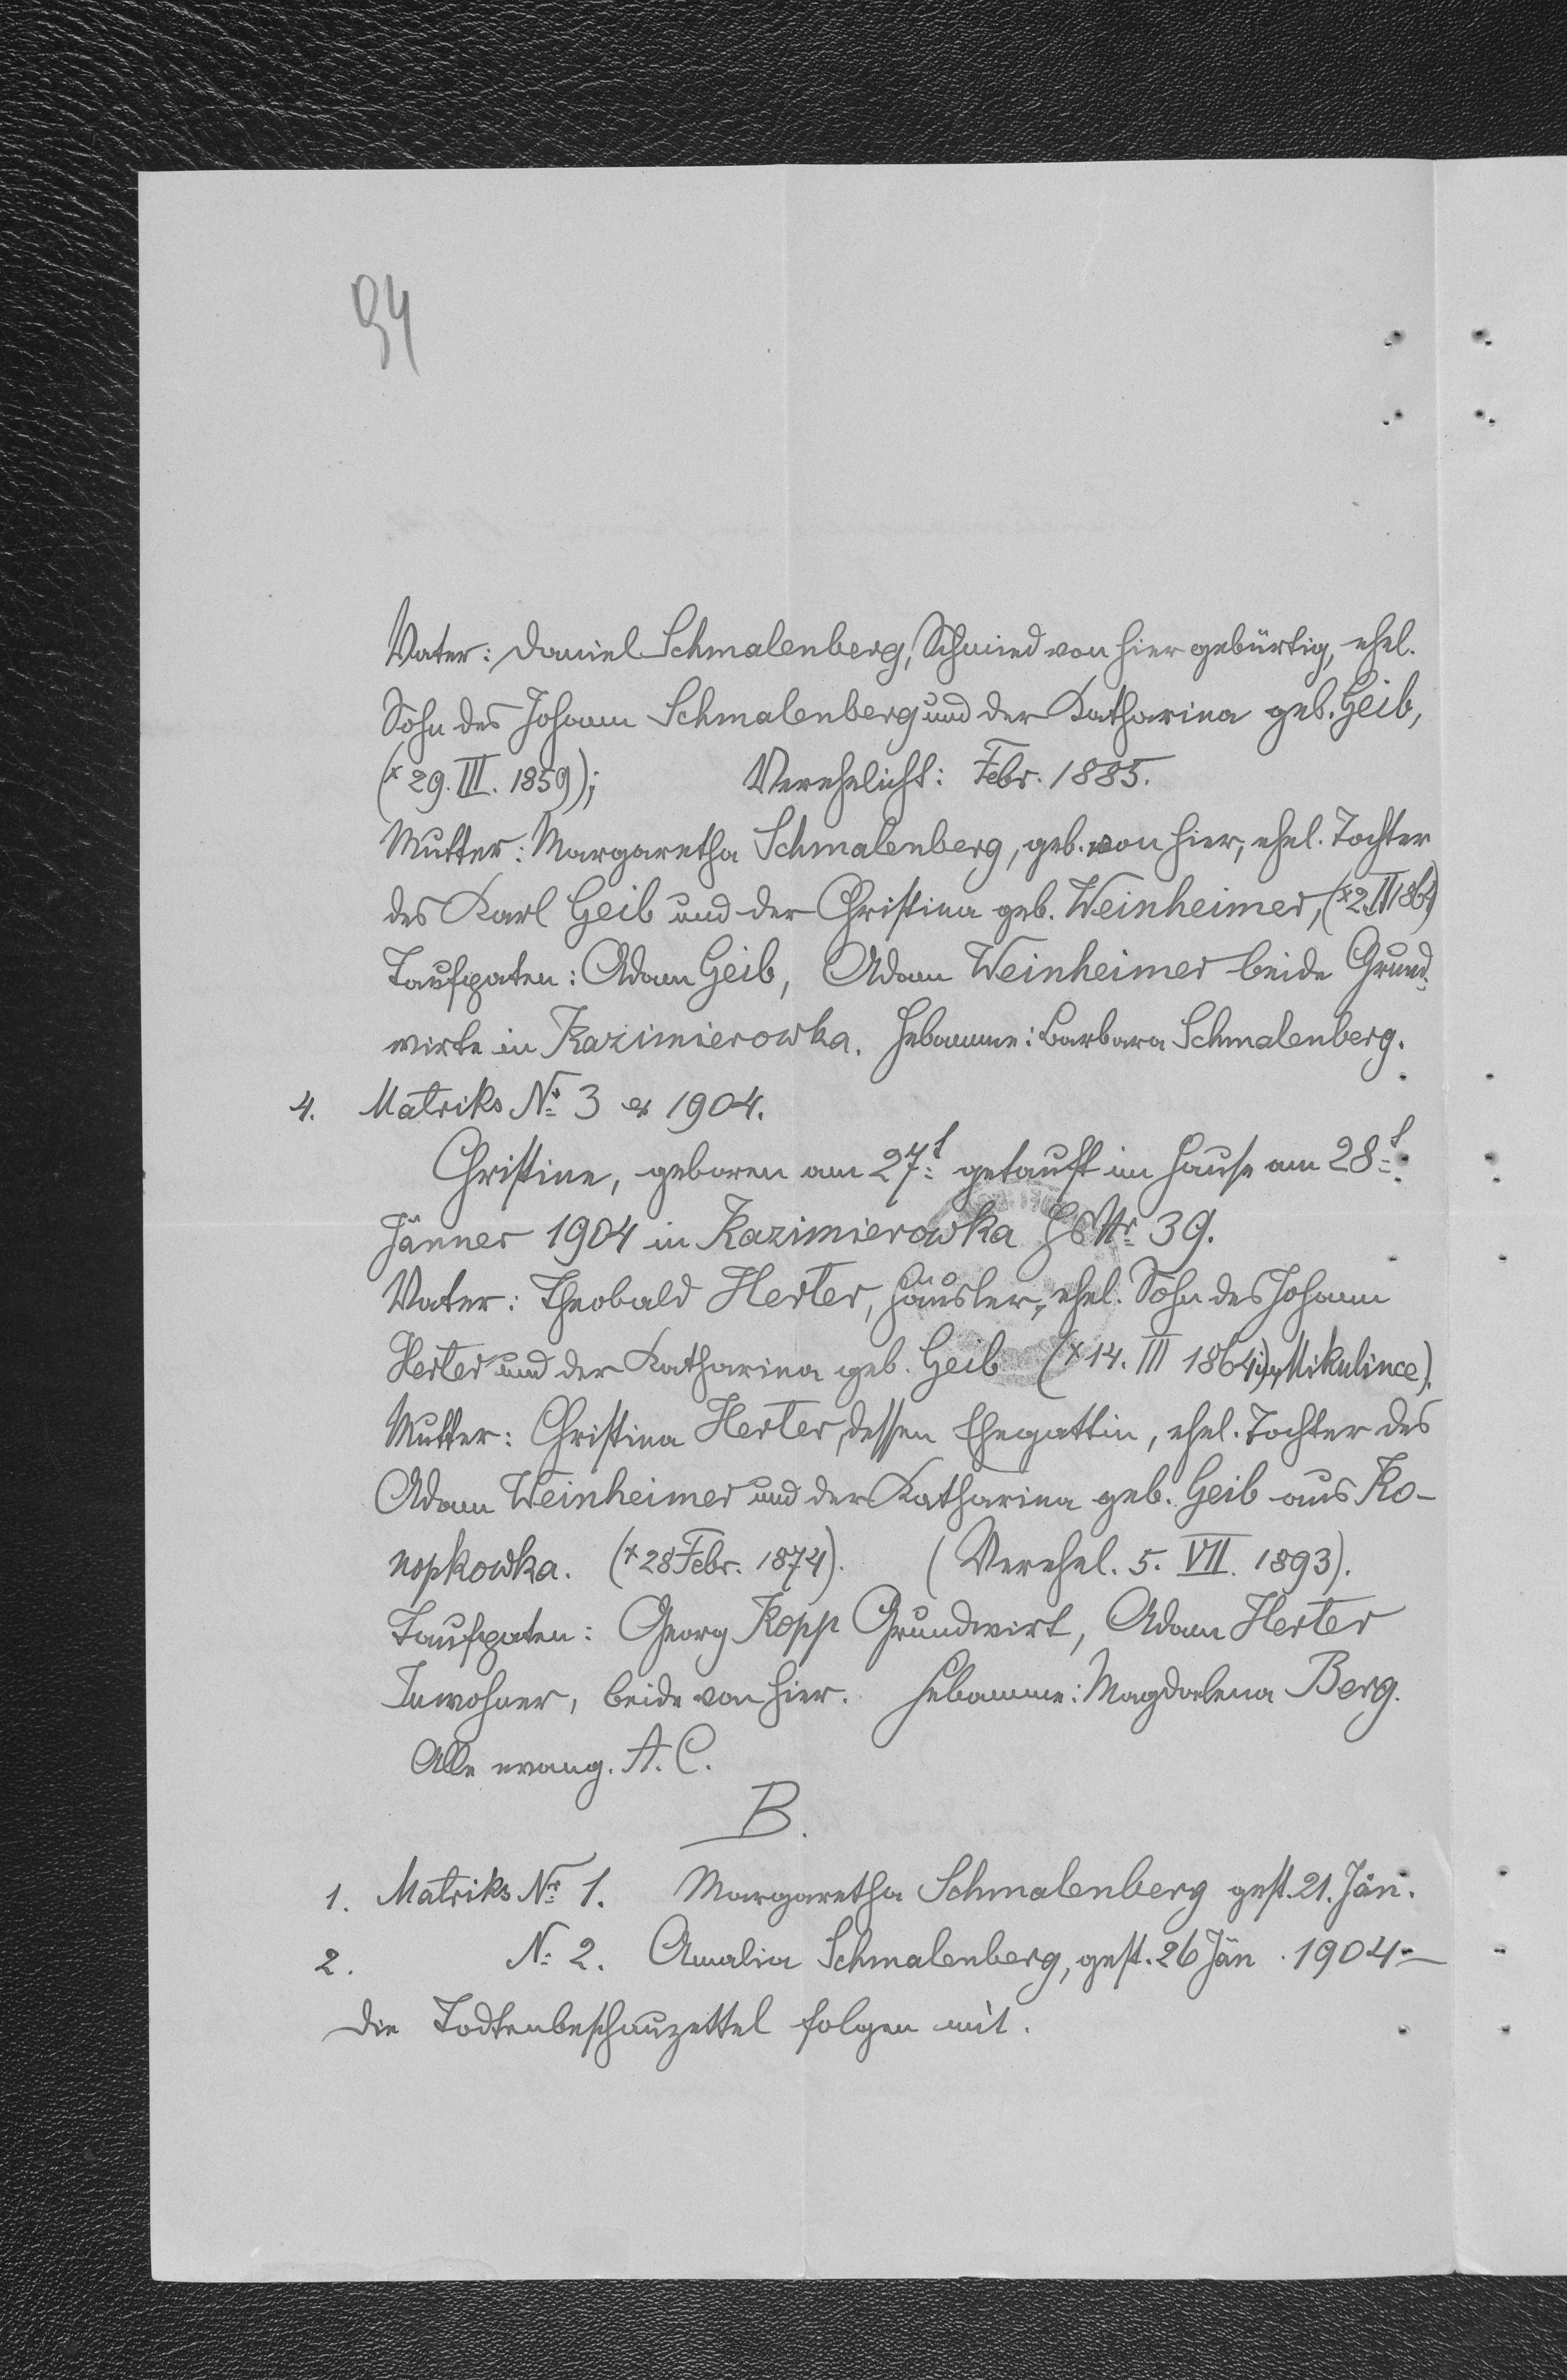 94
Vater: Daniel Schmalenberg, Schmied von hier gebürtig, ehel.
Sohn des Johann Schmalenberg und der Katharina geb. Geib,
(* 29. III. 1859); Verehelicht: Febr. 1885.
Mutter: Margaretha Schmalenberg, geb. von hier, ehel. Tochter
des Karl Geib und der Christina geb. Weinheimer,
Taufpaten: Adam Geib, Adam Weinheimer beide Grund-
wirte in Kazimierowka. Hebamme: Barbara Schmalenberg.
4. Matriks Nr. 3 ex 1904.
Christine, geboren am 27t. getauft im Hause am 28t.
Jänner 1904 in Kazimierowka HsNr. 39.
Vater: Theobald Herter, Häusler, ehel. Sohn des Johann
Herter und der Katharina geb. Geib (* 14. III 1864 in Mikulince).
Mutter: Christina Herter, dessen Ehegattin, ehel. Tochter des
Adam Weinheimer und der Katharina geb. Geib aus Ko-
nopkowka. (* 28 Febr. 1874). (Verehel. 5. VII. 1893).
Taufpaten: Georg Kopp Grundwirt, Adam Herter
Inwohner, beide von hier. Hebamme: Magdalena Berg.
Alle evang. A. C.
B.
1. Matriks Nr. 1. Margaretha Schmalenberg gest. 21. Jän.
2. N. 2. Amalia Schmalenberg, gest. 26 Jän. 1904 —
Die Todtenbeschauzettel folgen mit.